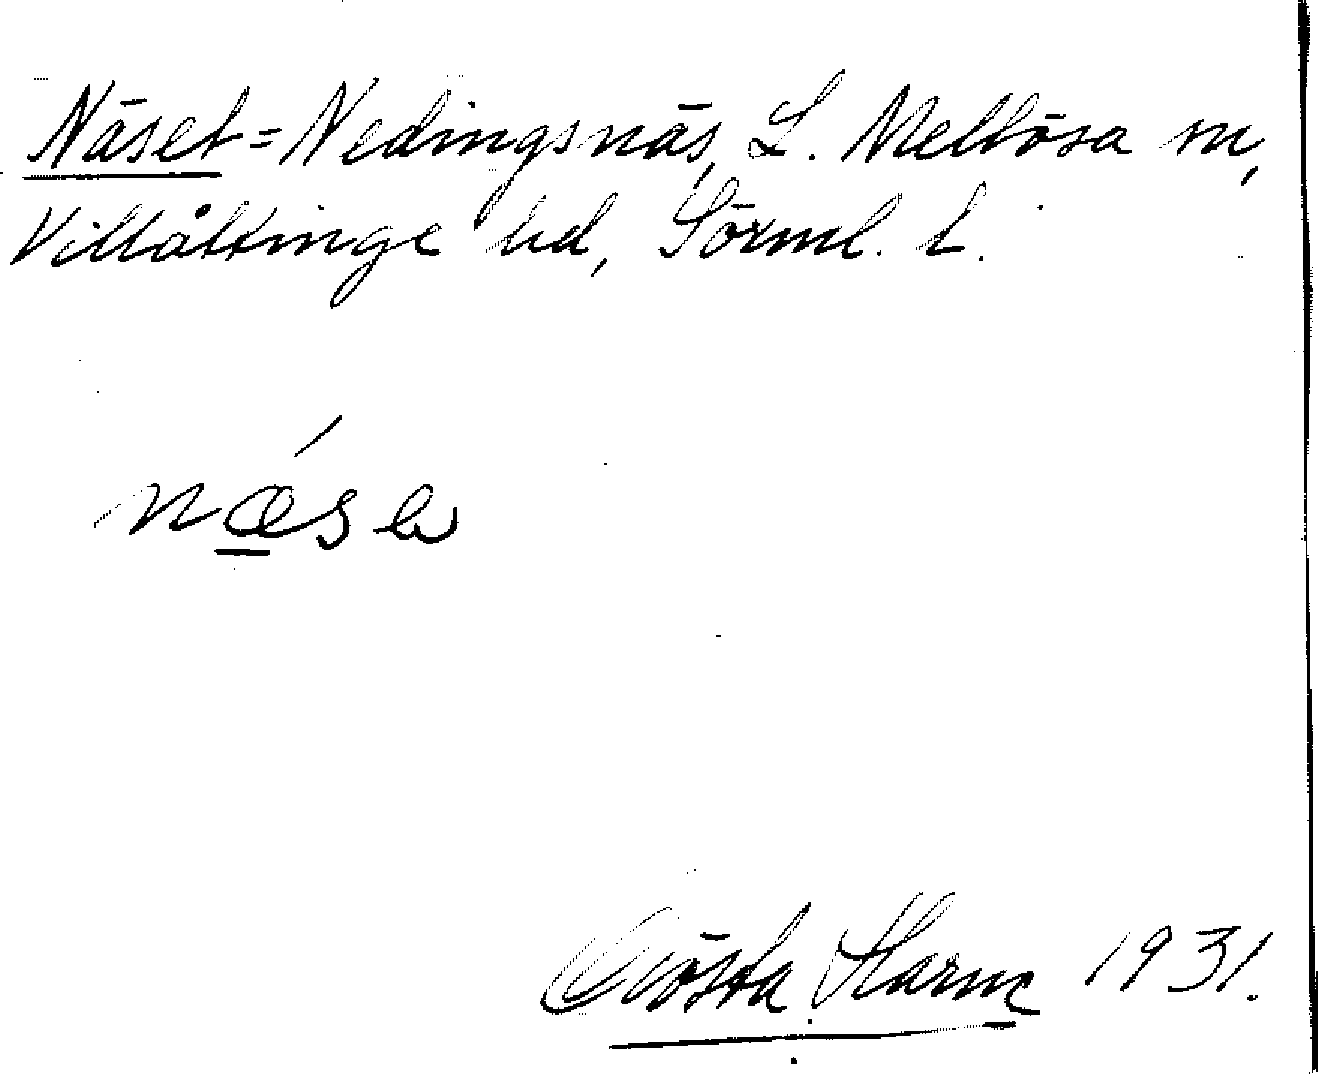 Näset = Nedingsnäs, L. Mellösa sn,
Villåttinge hd, Sörml. l.
nǽ̱se
Gösta Harne 1931.